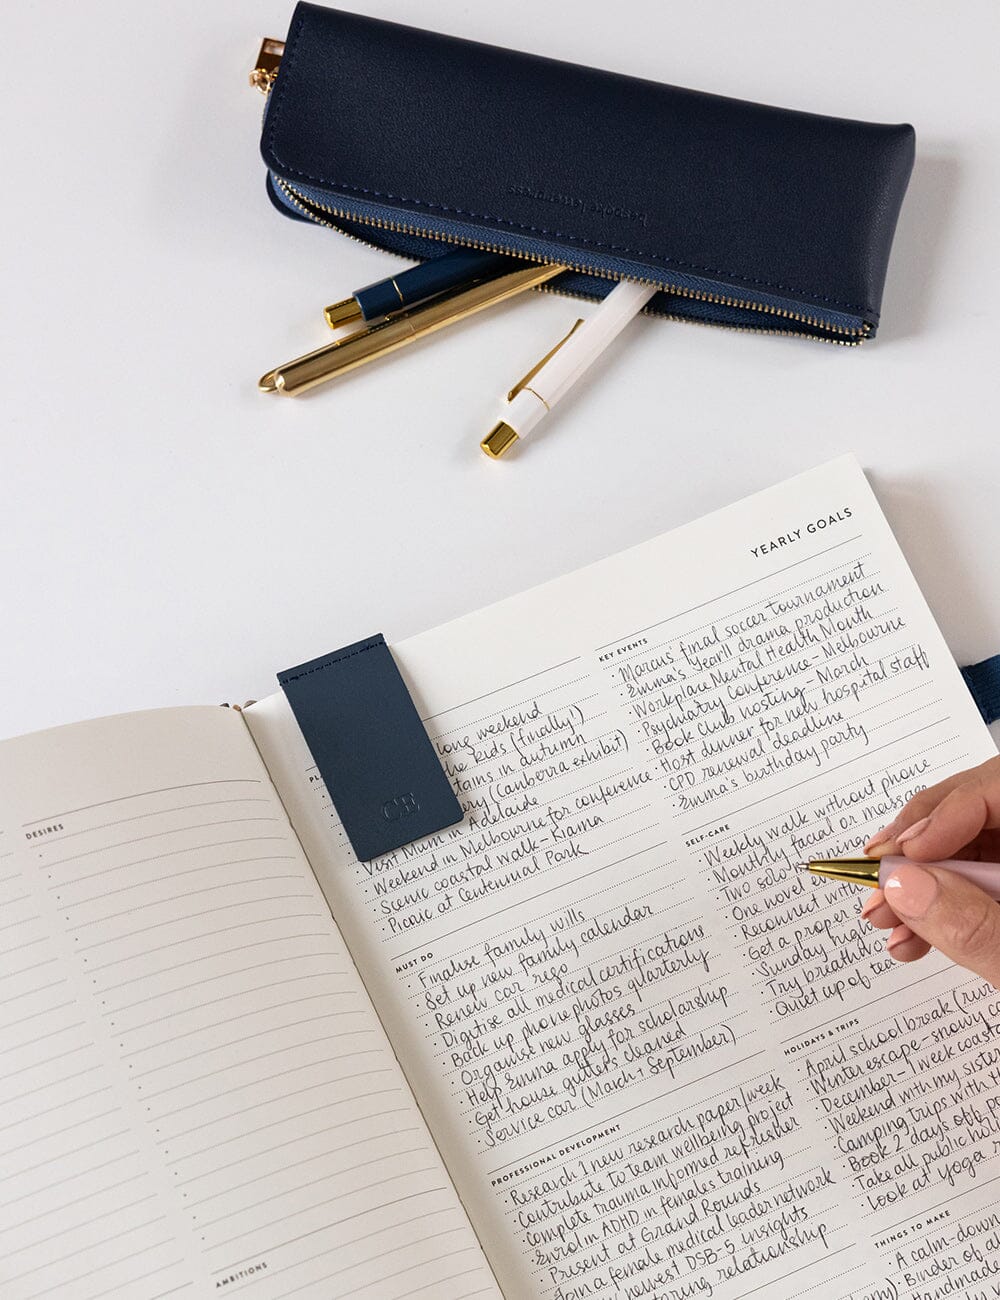 bespoke letterpress
YEARLY GOALS
DESIRES
AMBITIONS
CE
long weekend
the kids (finally!)
in autumn
(Canberra exhibit)
Visit Mum in Adelaide
· Weekend in Melbourne for conference
· Scenic coastal walk - Kiama
· Picnic at Centennial Park
MUST DO
· Finalise family wills
· Set up new family calendar
· Renew car rego
· Digitise all medical certifications
· Back up phone photos quarterly
· Organise new glasses
· Help Emma apply for scholarship
· Get house gutters cleaned
· Service car (March + September)
PROFESSIONAL DEVELOPMENT
· Research 1 new research paper/week
· Contribute to team wellbeing project
· Complete trauma informed refresher
· Enrol in ADHD in females training
· Present at Grand Rounds
· Join a female medical leader network
newest DSB-5 insights
relationship
KEY EVENTS
· Marcus' final soccer tournament
· Emma's Year 11 drama production
· Workplace Mental Health Month
· Psychiatry Conference - Melbourne
· Book Club hosting - March
· Host dinner for new hospital staff
· CPD renewal deadline
· Emma's birthday party
SELF-CARE
· Weekly walk without phone
· Monthly facial or massage
· Two solo mornings
· One novel
· Reconnect with
· Get a proper
· Sunday
· Try breathwo
· Quiet cup of tea
HOLIDAYS & TRIPS
· April school break
· Winter escape - snowy
· December - 1 week coast
· Weekend with my sister
· Camping trips with
· Book 2 days off
· Take all public
· Look at yoga
THINGS TO MAKE
· A calm-down
· Binder of
· Handmade